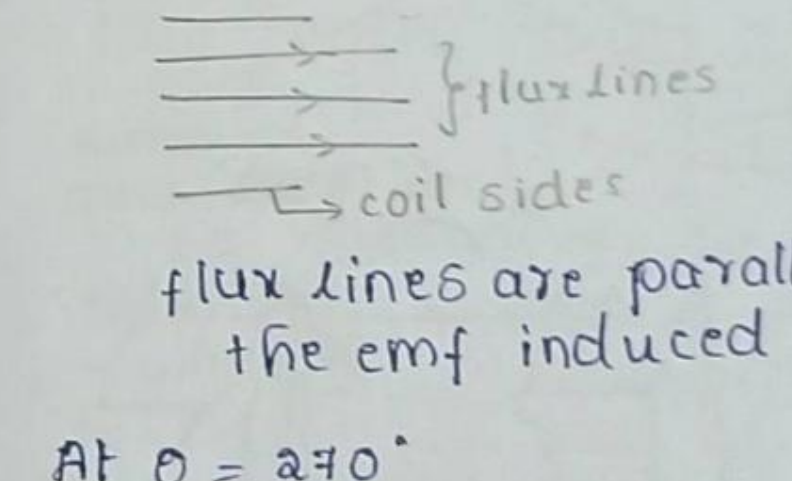 flux lines
coil sides
flux lines are
the emf induced
At θ = 270°